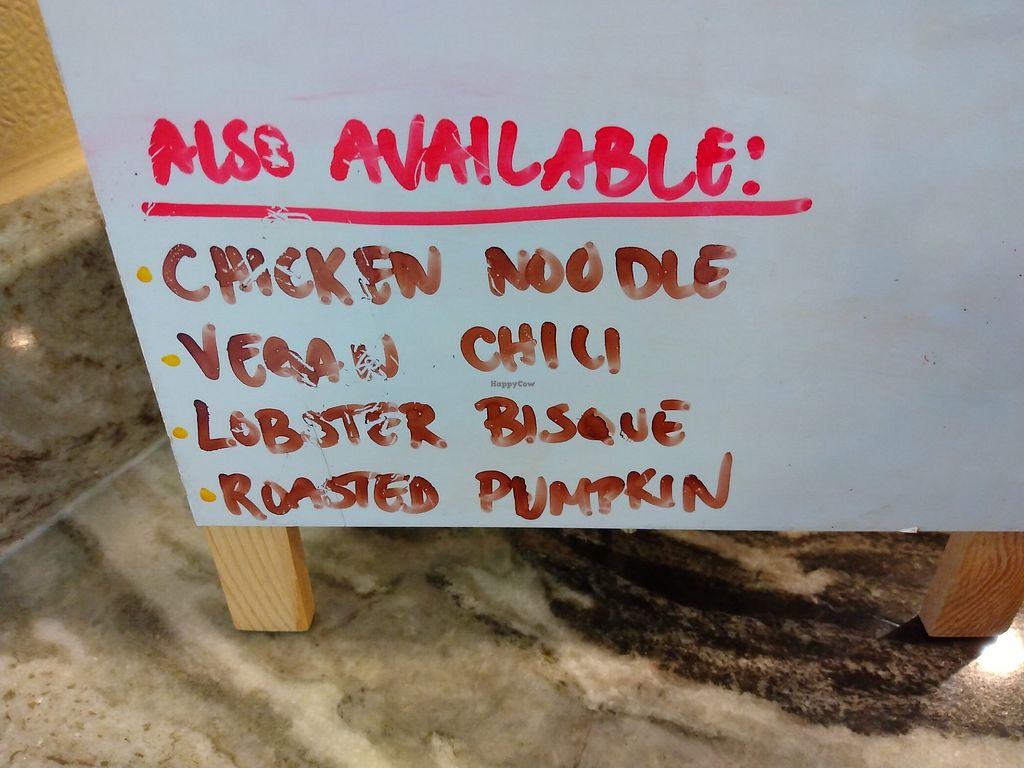 ALSO AVAILABLE:
• CHICKEN NOODLE
• VEGAN CHILI
HappyCow
• LOBSTER BISQUE
• ROASTED PUMPKIN